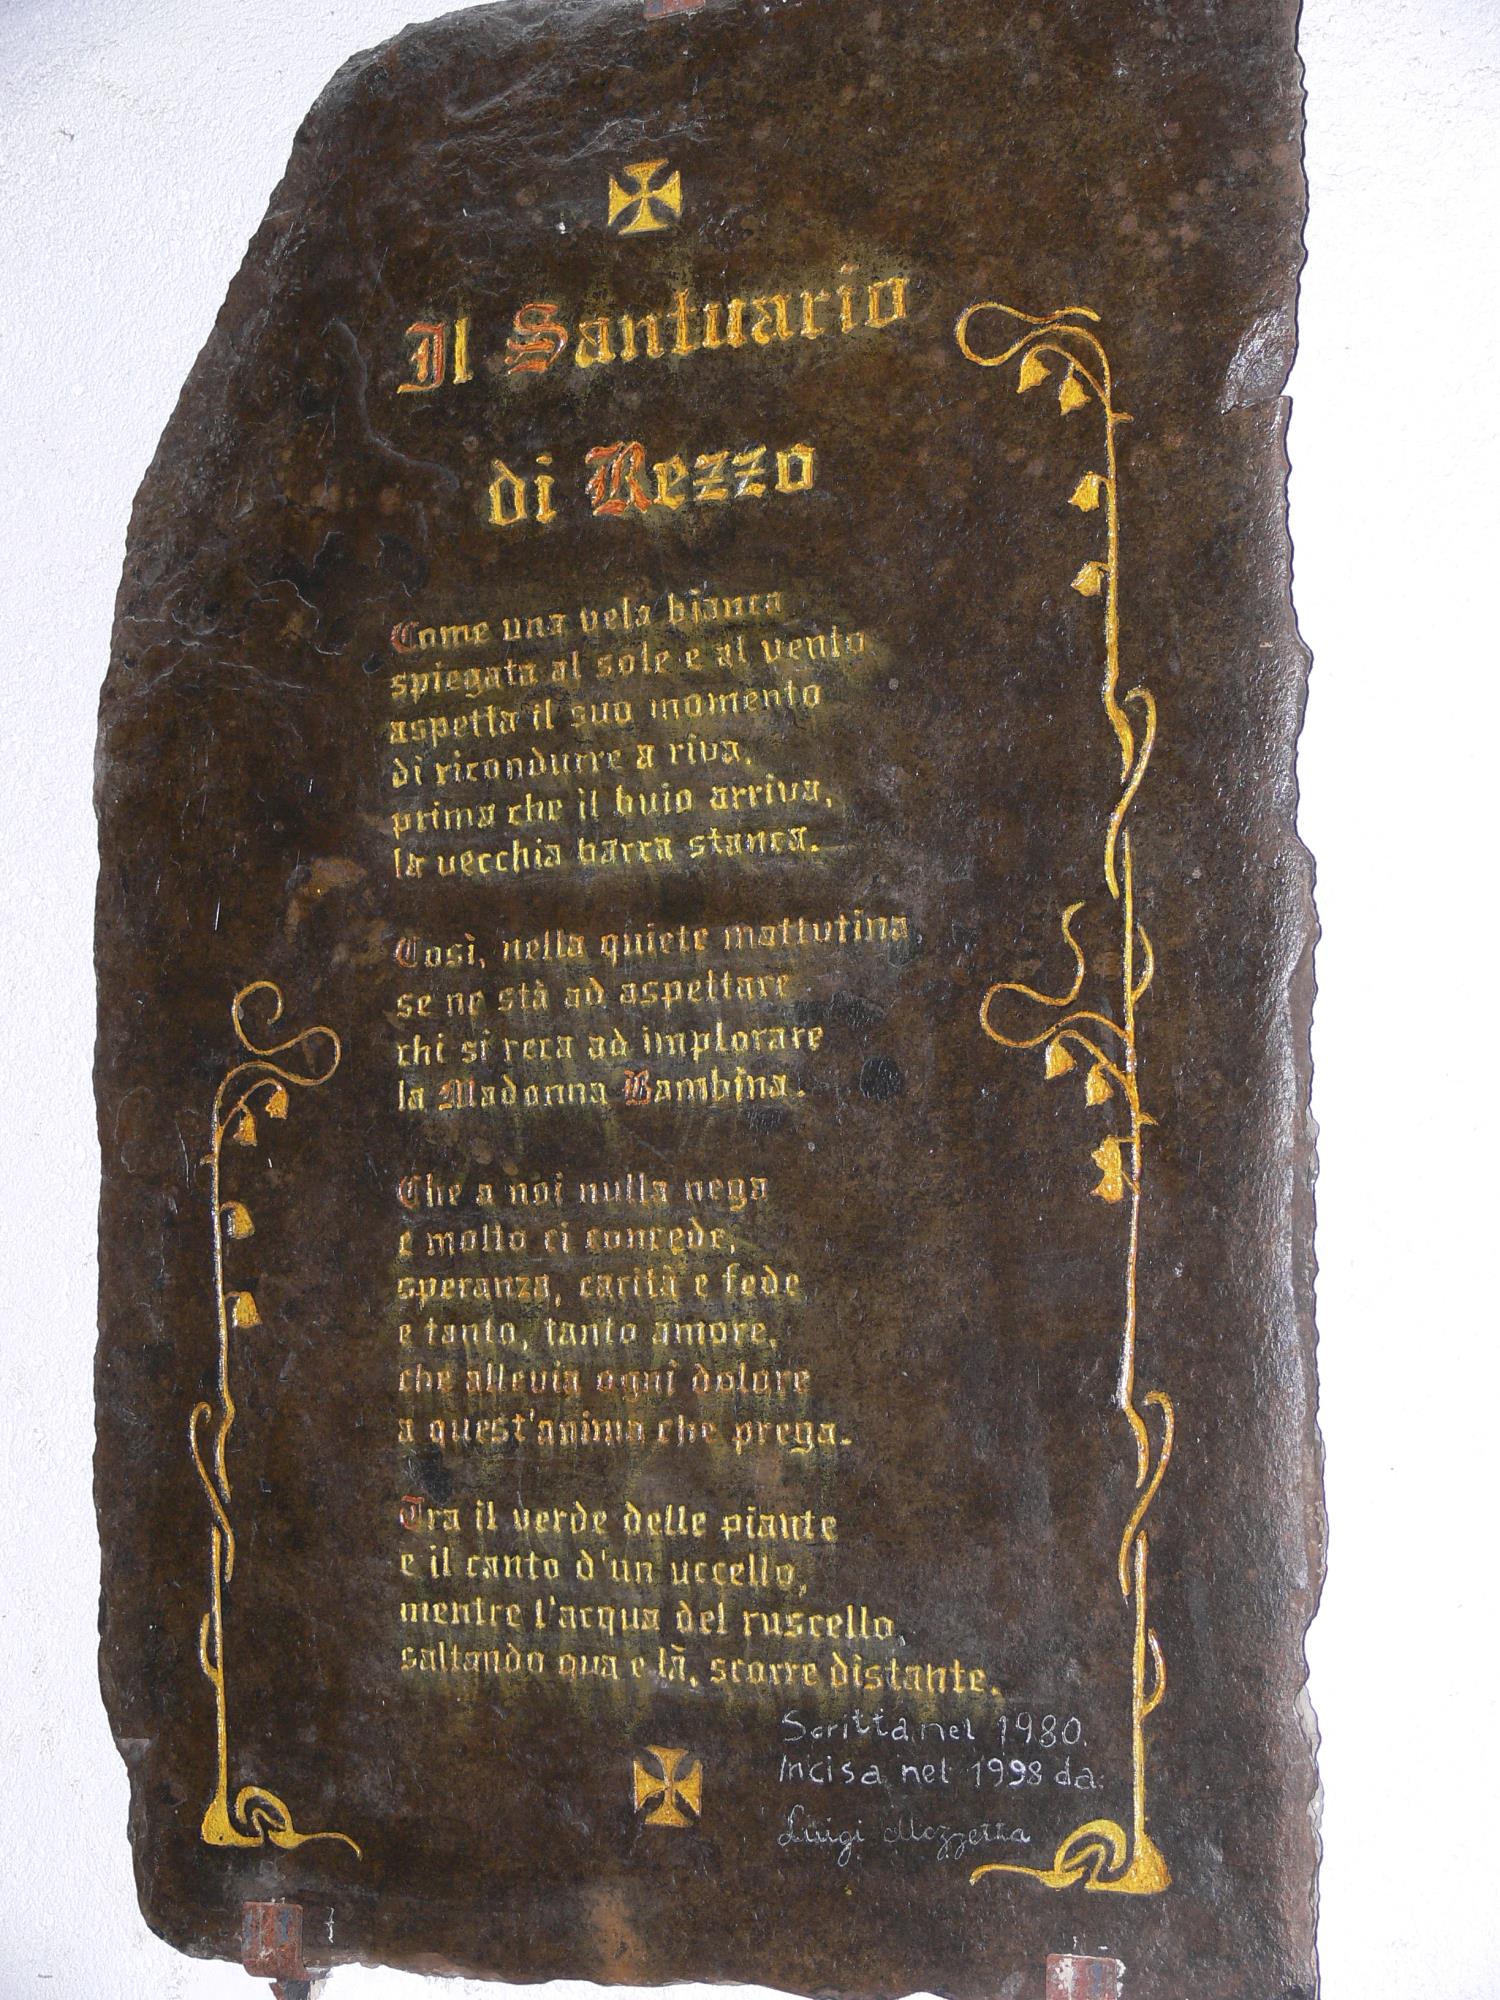 Il Santuario
di Rezzo
Come una vela bianca
spiegata al sole e al vento
aspetta il suo momento
di ricondurre a riva,
prima che il buio arriva,
la vecchia barca stanca.
Così, nella quiete mattutina,
se ne stà ad aspettare
chi si reca ad implorare
la Madonna Bambina.
Che a noi nulla nega
e molto ci concede,
speranza, carità e fede
e tanto, tanto amore,
che allevia ogni dolore
a quest'anima che prega.
Tra il verde delle piante
e il canto d'un uccello,
mentre l'acqua del ruscello,
saltando qua e là, scorre distante.
Scritta nel 1980.
Incisa nel 1998 da:
Luigi Mozzetta